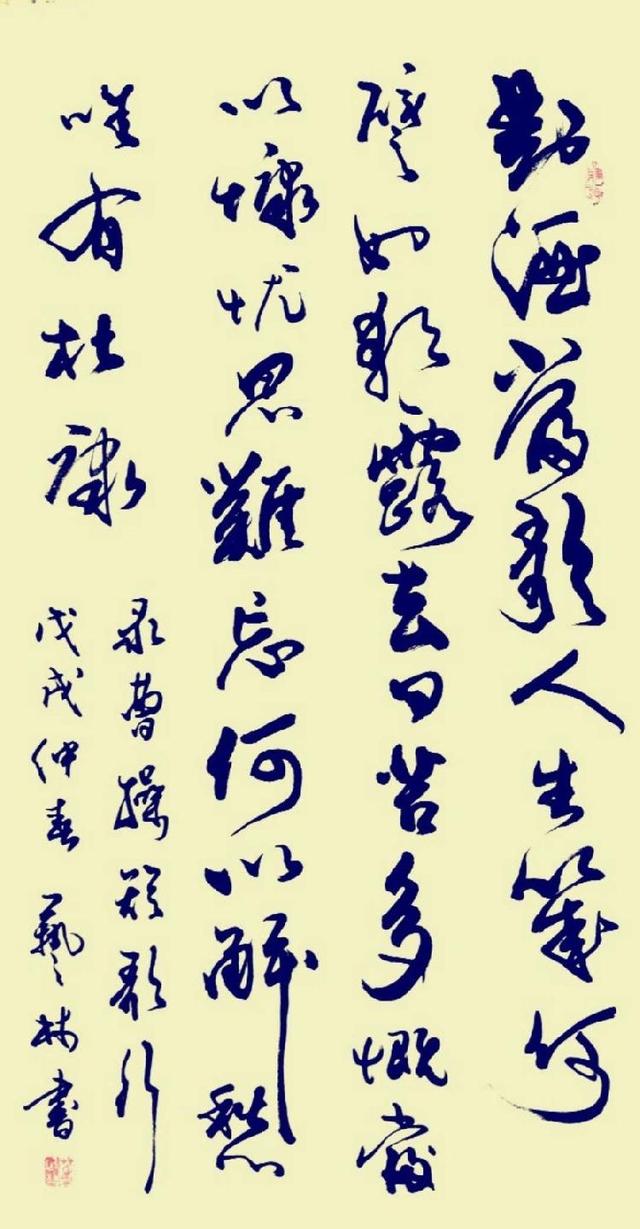 對酒當歌人生幾何
譬如朝露去日苦多慨當
以慷忧思難忘何以解愁
唯有杜康
录曹操短歌行
戊戌仲春藝林書